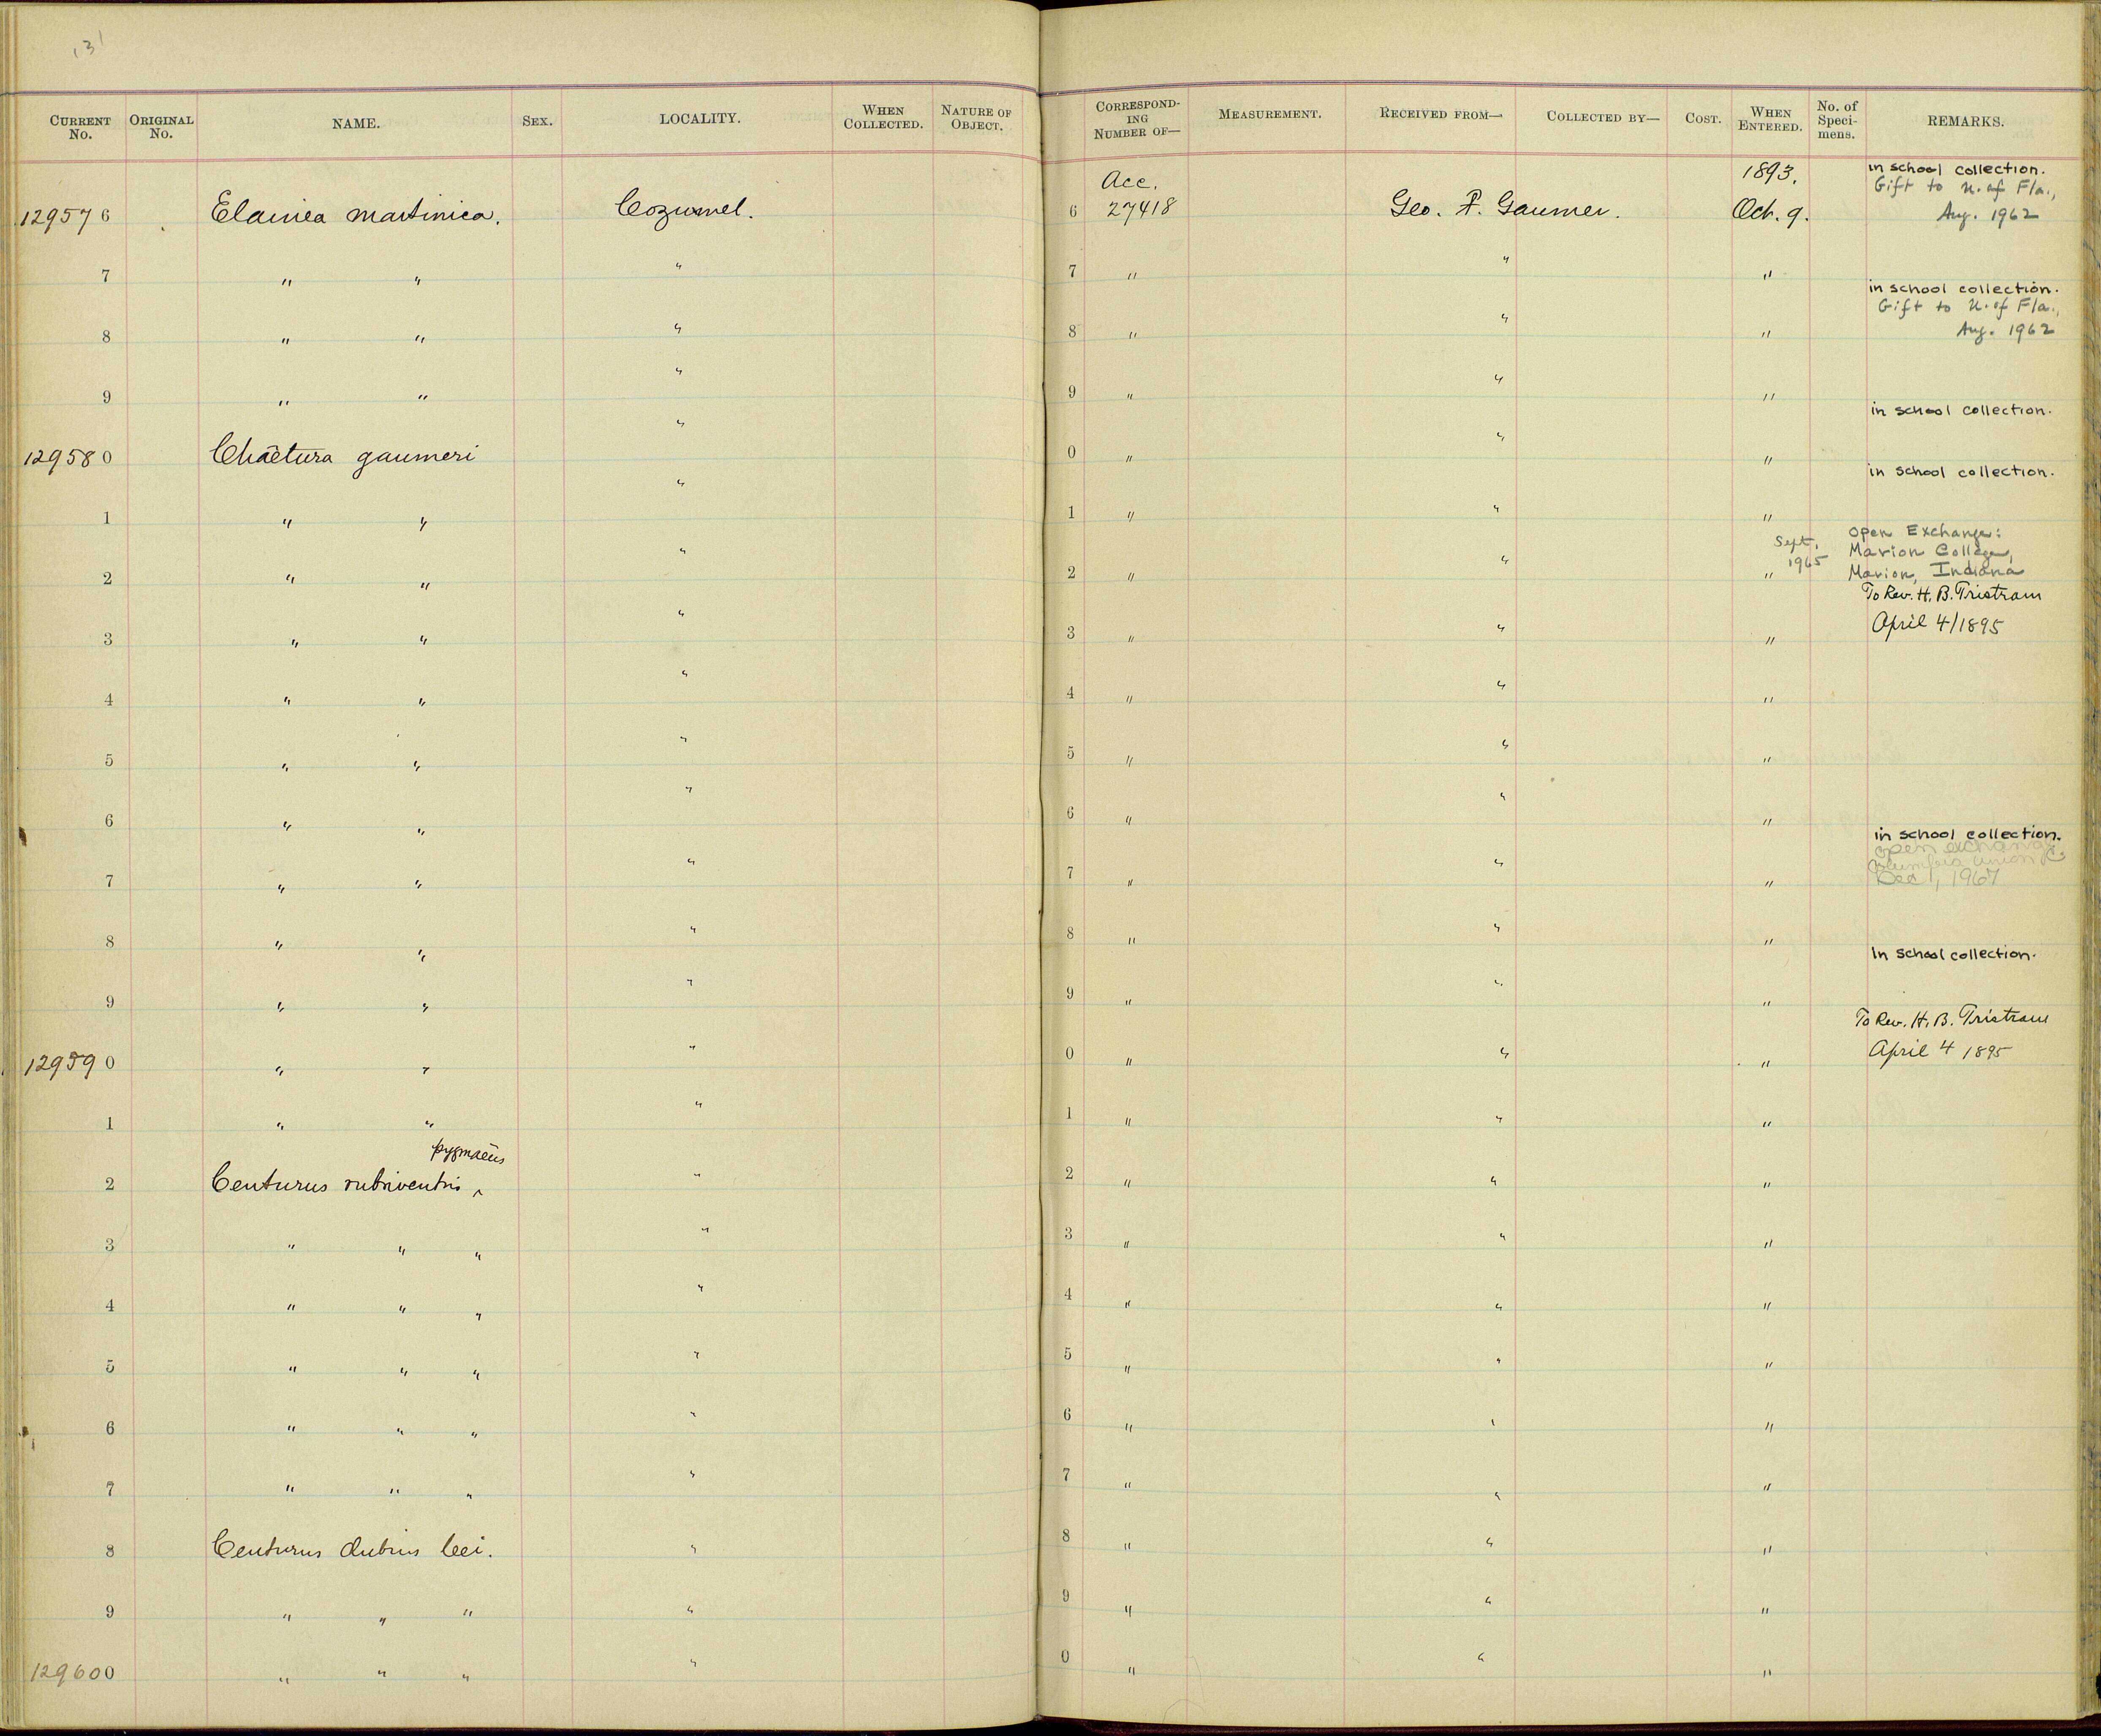 131
CURRENT No. ORIGINAL No. NAME. SEX. LOCALITY. WHEN COLLECTED. NATURE OF OBJECT. CORRESPONDING NUMBER OF— MEASUREMENT. RECEIVED FROM— COLLECTED BY— COST. WHEN ENTERED. No. of Specimens. REMARKS.
Acc. 1893. in school collection.
Gift to U. of Fla.,
129576 Elainea martinica. Cozumel. 6 27418 Geo. F. Gaumer. Oct. 9. Aug. 1962
7 " " " 7 " " "
in school collection.
Gift to U. of Fla.,
8 " " " 8 " " " Aug. 1962
9 " " " 9 " " "
in school collection.
129580 Chaetura gaumeri " 0 " " "
in school collection.
1 " " " 1 " " "
Sept. 1965 Open Exchange:
Marion College,
2 " " " 2 " " " Marion, Indiana
To Rev. H. B. Tristram
3 " " " 3 " " " April 4/1895
4 " " " 4 " " "
5 " " " 5 " " "
6 " " " 6 " " "
in school collection.
open exchange
Columbia Union C.
7 " " " 7 " " " Dec 1, 1967
8 " " " 8 " " "
In school collection.
9 " " " 9 " " "
To Rev. H. B. Tristram
129590 " " " 0 " " " April 4 1895
1 " " " 1 " " "
pygmaeus
2 Centurus rubriventris ^ " 2 " " "
3 " " " " 3 " " "
4 " " " " 4 " " "
5 " " " " 5 " " "
6 " " " " 6 " " "
7 " " " " 7 " " "
8 Centurus dubius leei. " 8 " " "
9 " " " " 9 " " "
129600 " " " " 0 " " "